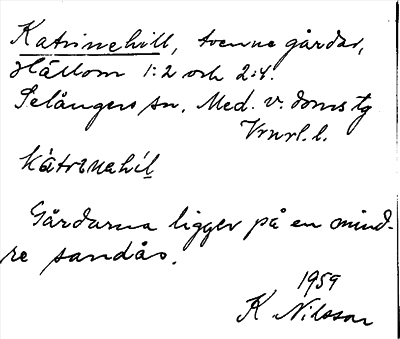 Katrinehill, tvenne gårdar,
Hällom 1:2 och 2:4.
Selångers sn. Med. v. doms tg
Vrnrl. l.
kàtrinehíl
Gårdarna ligger på en mind-
re sandås.
1959
K Nilsson